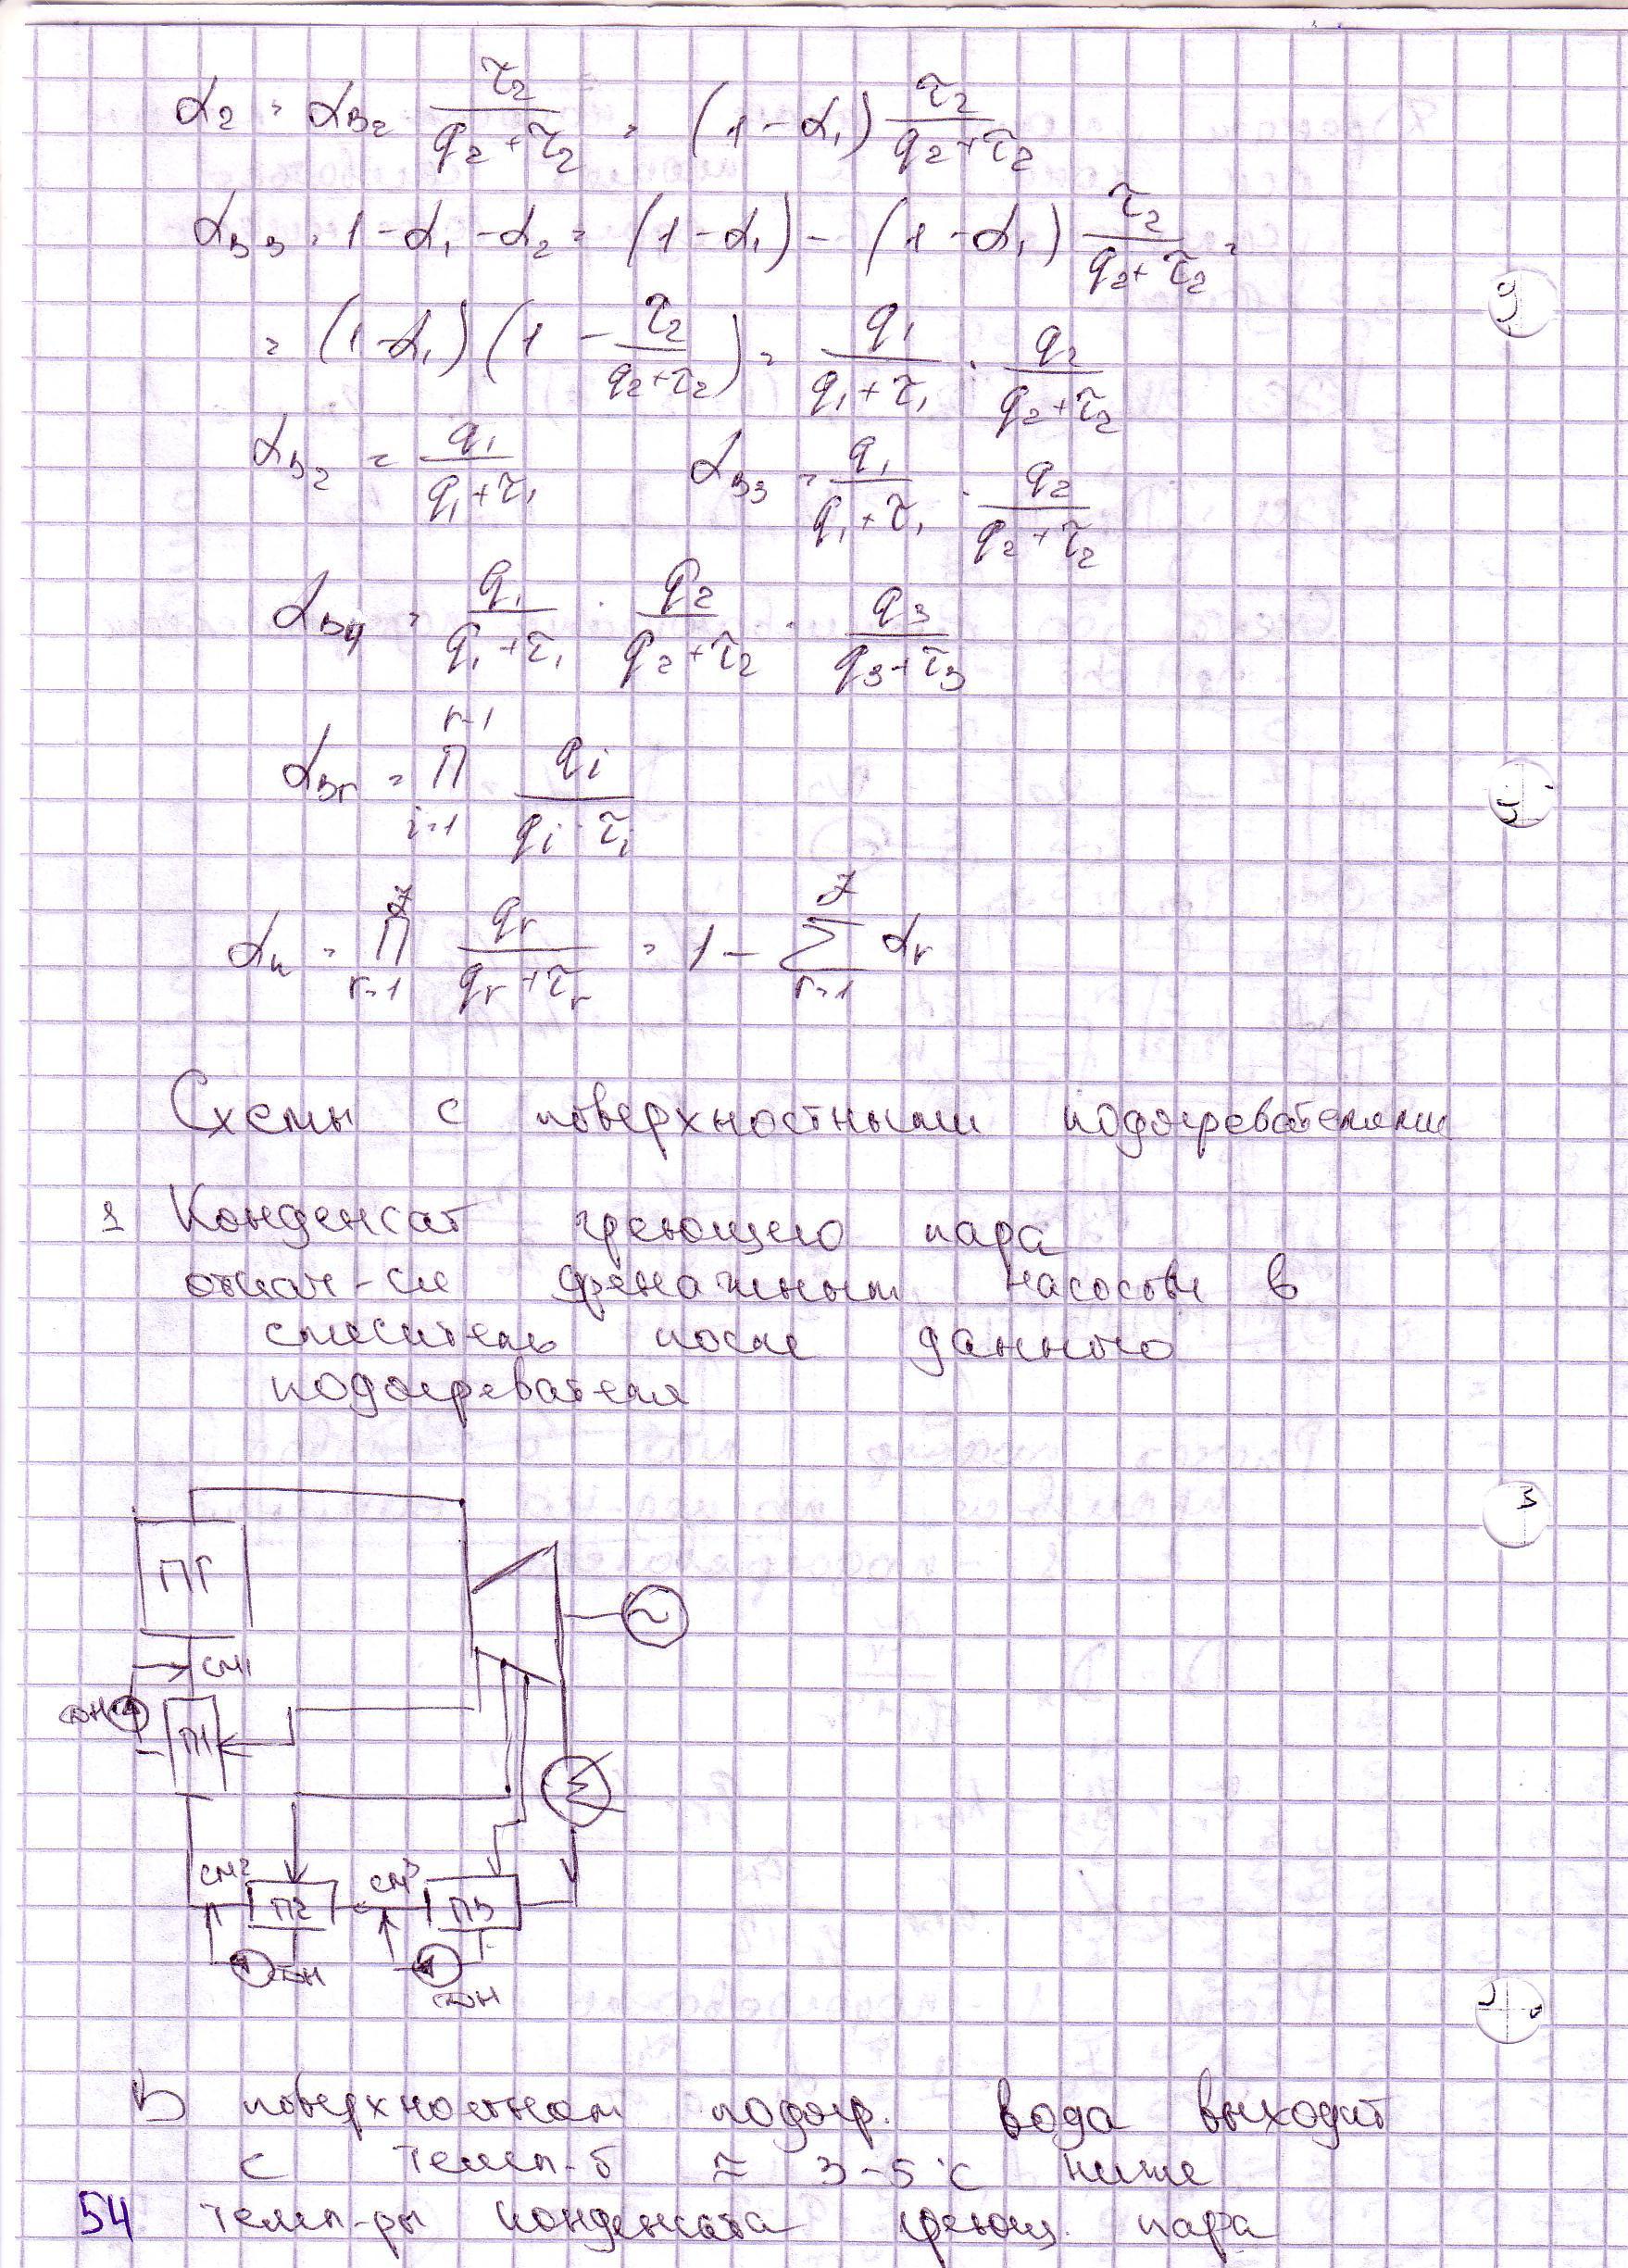 α₂ = α_в₂ τ₂/(q₂+τ₂) = (1-α₁) τ₂/(q₂+τ₂)
α_в₃ = 1-α₁-α₂ = (1-α₁) - (1-α₁) τ₂/(q₂+τ₂) =
= (1-α₁)(1 - τ₂/(q₂+τ₂)) = q₁/(q₁+τ₁) · q₂/(q₂+τ₂)
α_в₂ = q₁/(q₁+τ₁) α_в₃ = q₁/(q₁+τ₁) · q₂/(q₂+τ₂)
α_в₄ = q₁/(q₁+τ₁) · q₂/(q₂+τ₂) · q₃/(q₃+τ₃)
α_вr = ∏_{i=1}^{r-1} q_i/(q_i+τ_i)
α_к = ∏_{r=1}^{z} q_r/(q_r+τ_r) = 1 - ∑_{r=1}^{z} α_r
Схемы с поверхностными подогревателями
1 Конденсат греющего пара
откач-ся дренажным насосом в
смеситель после данного
подогревателя
ПГ
СМ1
ДН
П1
СМ2
П2
СМ3
П3
ДН
ДН
В поверхностном подогр. вода выходит
с темп-й ≈ 3-5°С ниже
темп-ры конденсата греющ. пара
54